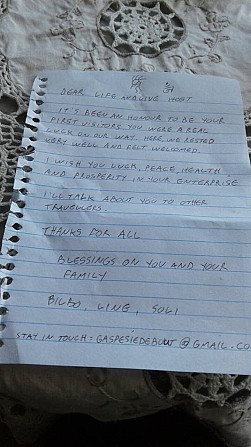 DEAR LIFE AND LING HOST
IT'S BEEN AN HONOUR TO BE YOUR
FIRST VISITORS YOU WERE A REAL
LUCK ON OUR WAY. HERE, WE RESTED
VERY WELL AND FELT WELCOMED.
I WISH YOU LUCK, PEACE, HEALTH
AND PROSPERITY IN YOUR ENTERPRISE
I'LL TALK ABOUT YOU TO OTHER
TRAVELLERS.
THANKS FOR ALL
BLESSINGS ON YOU AND YOUR
FAMILY
BILBO, LING, SOLI
STAY IN TOUCH = GASPESIEDEBOUT@GMAIL.CO